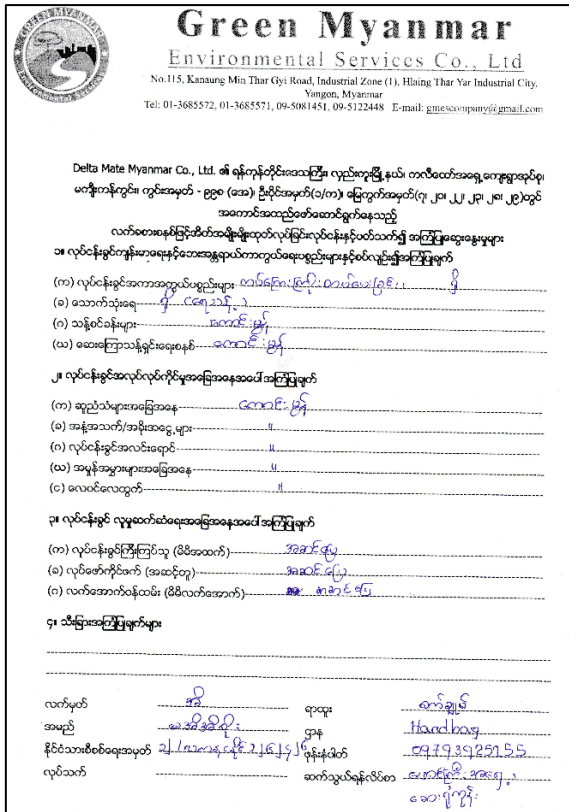 Green Myanmar
Environmental Services Co., Ltd
No.115, Kanaung Min Thar Gyi Road, Industrial Zone (1), Hlaing Thar Yar Industrial City,
Yangon, Myanmar
Tel: 01-3685572, 01-3685571, 09-5081451, 09-5122448 E-mail: gmescompany@gmail.com
Delta Mate Myanmar Co., Ltd. ၏ ရန်ကုန်တိုင်းဒေသကြီး၊ လှည်းကူးမြို့နယ်၊ တလီထော်အရှေ့ကျေးရွာအုပ်စု၊
မကျီးကန်ကွင်း၊ ကွင်းအမှတ် - ၉၉၈ (အေ)၊ ဦးပိုင်အမှတ်(၁/က)၊ မြေကွက်အမှတ်(၇၊ ၂၀၊ ၂၂၊ ၂၃၊ ၂၈၊ ၂၉)တွင်
အကောင်အထည်ဖော်ဆောင်ရွက်နေသည့်
လက်စားစနစ်ဖြင့်အိတ်အမျိုးမျိုးထုတ်လုပ်ခြင်းလုပ်ငန်းနှင့်ပတ်သက်၍ အကြံပြုဆွေးနွေးမှုများ
၁။ လုပ်ငန်းခွင်ကျန်းမာရေးနှင့်ဘေးအန္တရာယ်ကာကွယ်ရေးပစ္စည်းများနှင့်စပ်လျဉ်း၍အကြံပြုချက်
(က) လုပ်ငန်းခွင်အကာအကွယ်ပစ္စည်းများ ရှိ
(ခ) သောက်သုံးရေ ရှိ (ရေသန့်)
(ဂ) သန့်စင်ခန်းများ ကောင်းမွန်
(ဃ) ဆေးကြောသန့်ရှင်းရေးစနစ် ကောင်းမွန်
၂။ လုပ်ငန်းခွင်အလုပ်လုပ်ကိုင်မှုအခြေအနေအပေါ် အကြံပြုချက်
(က) ဆူညံသံများအခြေအနေ ကောင်းမွန်
(ခ) အနံ့အသက်/အခိုးအငွေ့များ "
(ဂ) လုပ်ငန်းခွင်အလင်းရောင် "
(ဃ) အမှုန်အမွှားများအခြေအနေ "
(င) လေဝင်လေထွက် "
၃။ လုပ်ငန်းခွင် လူမှုဆက်ဆံရေးအခြေအနေအပေါ် အကြံပြုချက်
(က) လုပ်ငန်းခွင်ကြီးကြပ်သူ (မိမိအထက်) အဆင်ပြေ
(ခ) လုပ်ဖော်ကိုင်ဖက် (အဆင့်တူ) အဆင်ပြေ
(ဂ) လက်အောက်ဝန်ထမ်း (မိမိလက်အောက်) အဆင်ပြေ
၄။ သီးခြားအကြံပြုချက်များ
လက်မှတ် အိ ရာထူး စက်ချုပ်
အမည် ဌာန Handbag
နိုင်ငံသားစိစစ်ရေးအမှတ် ဖုန်းနံပါတ် 09793925155
လုပ်သက် ဆက်သွယ်ရန်လိပ်စာ